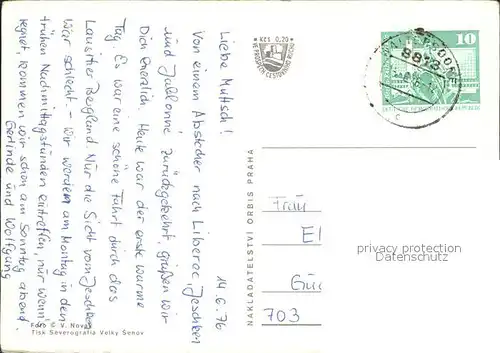 14.6.76
Liebe Muttsch!
Von einem Abstecher nach Liberec, Jeschken
und Jablonné zurückgekehrt, grüßen wir
Dich herzlich. Heute war der erste warme
Tag. Es war eine schöne Fahrt durch das
Lausitzer Bergland. Nur die Sicht vom Jeschken
war schlecht. - Wir werden am Montag in den
frühen Nachmittagsstunden eintreffen, nur wenn's
regnet, kommen wir schon am Sonntag abend.
Gerlinde und Wolfgang
Foto © V. Novák
Tisk Severografia Velký Šenov
NAKLADATELSTVÍ ORBIS PRAHA
Kčs 0,20
10
Frau
El
703
privacy protection
Ansichtskartenversand.com